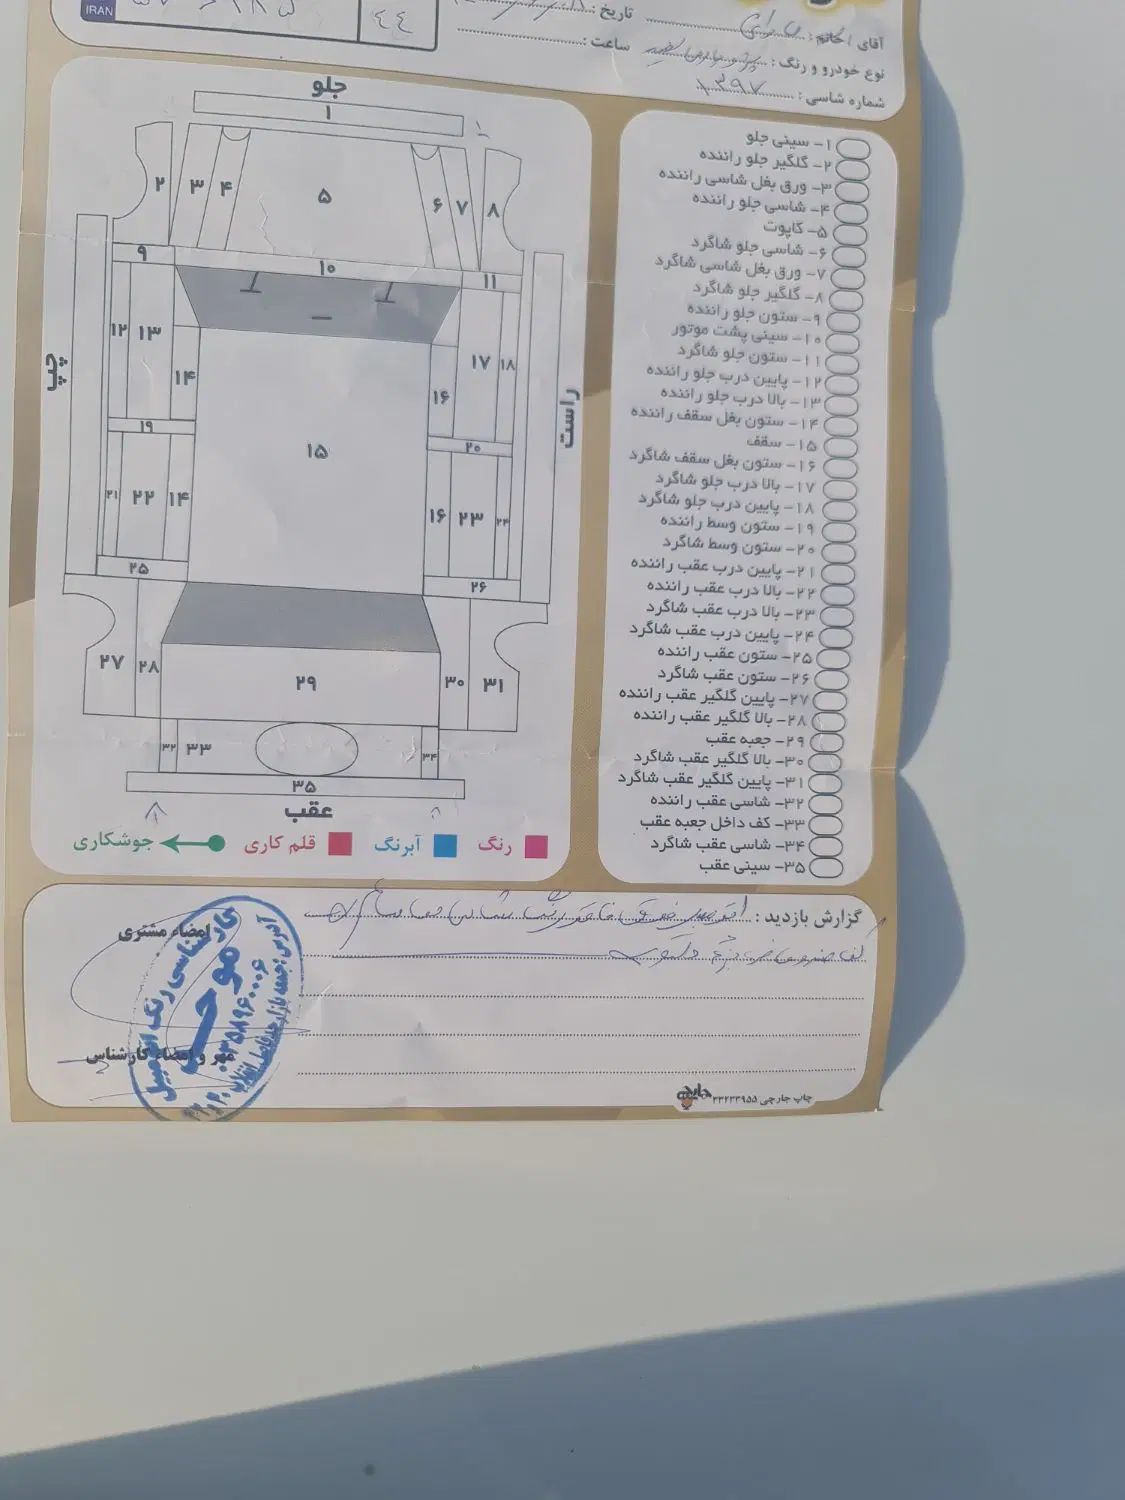 IRAN
۴۴
آقای / خانم :
تاریخ :
نوع خودرو و رنگ :
ساعت :
شماره شاسی : ۱۳۹۷
جلو
۱
۲ ۳ ۴ ۵ ۶ ۷ ۸
۹ ۱۰ ۱۱
۱۲ ۱۳ ۱۴ ۱۵ ۱۶ ۱۷ ۱۸
چپ
راست
۱۹ ۲۰
۲۱ ۲۲ ۱۴ ۱۶ ۲۳ ۲۴
۲۵ ۲۶
۲۷ ۲۸ ۲۹ ۳۰ ۳۱
۳۲ ۳۳ ۳۴
۳۵
عقب
رنگ
آبرنگ
قلم کاری
جوشکاری
۱- سینی جلو
۲- گلگیر جلو راننده
۳- ورق بغل شاسی راننده
۴- شاسی جلو راننده
۵- کاپوت
۶- شاسی جلو شاگرد
۷- ورق بغل شاسی شاگرد
۸- گلگیر جلو شاگرد
۹- ستون جلو راننده
۱۰- سینی پشت موتور
۱۱- ستون جلو شاگرد
۱۲- پایین درب جلو راننده
۱۳- بالا درب جلو راننده
۱۴- ستون بغل سقف راننده
۱۵- سقف
۱۶- ستون بغل سقف شاگرد
۱۷- بالا درب جلو شاگرد
۱۸- پایین درب جلو شاگرد
۱۹- ستون وسط راننده
۲۰- ستون وسط شاگرد
۲۱- پایین درب عقب راننده
۲۲- بالا درب عقب راننده
۲۳- بالا درب عقب شاگرد
۲۴- پایین درب عقب شاگرد
۲۵- ستون عقب راننده
۲۶- ستون عقب شاگرد
۲۷- پایین گلگیر عقب راننده
۲۸- بالا گلگیر عقب راننده
۲۹- جعبه عقب
۳۰- بالا گلگیر عقب شاگرد
۳۱- پایین گلگیر عقب شاگرد
۳۲- شاسی عقب راننده
۳۳- کف داخل جعبه عقب
۳۴- شاسی عقب شاگرد
۳۵- سینی عقب
گزارش بازدید :
امضاء مشتری
مهر و امضاء کارشناس
کارشناسی رنگ اتومبیل
موحد
چاپ جارچی ۳۳۲۳۳۹۵۵